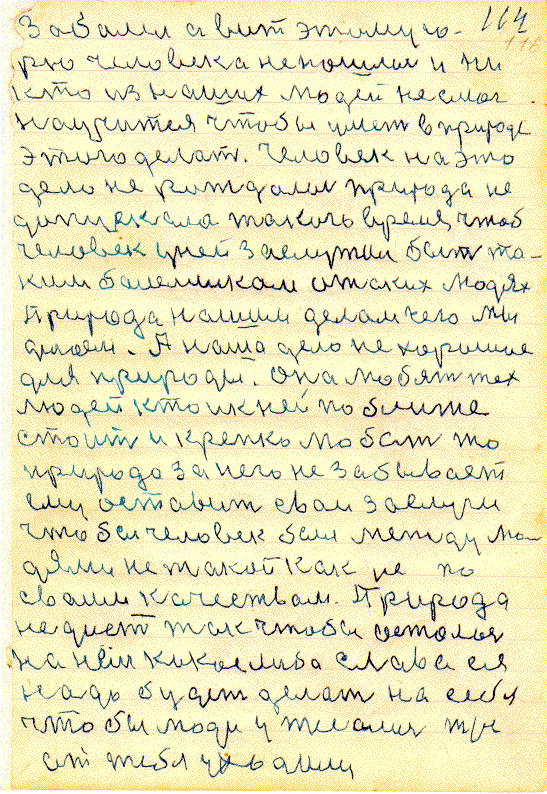 164
116
Забыли а вит этому го-
рю человека не пошли и ни
кто из наших людей не смог
научится чтобы умет в природе
этого делат. Человек на это
дело не рождался природа не
допускала такого время чтоб
человек у ней заслужил быт та-
ким болеником а таких людях
природа нашим делам чего мы
делаем. А наша дело не хорошие
для природы. Она любят тех
людей кто ик ней по ближе
стоит и крепко любит то
природа за него не забывает
ему оставит свои заслуги
что бы человек был между лю-
дями не такой как не по
своим качествам. Природа
не дает так чтобы осталося
на ней какое либо слава ея
надо будет делат на себя
что бы люди у жизни
от тебя уходили